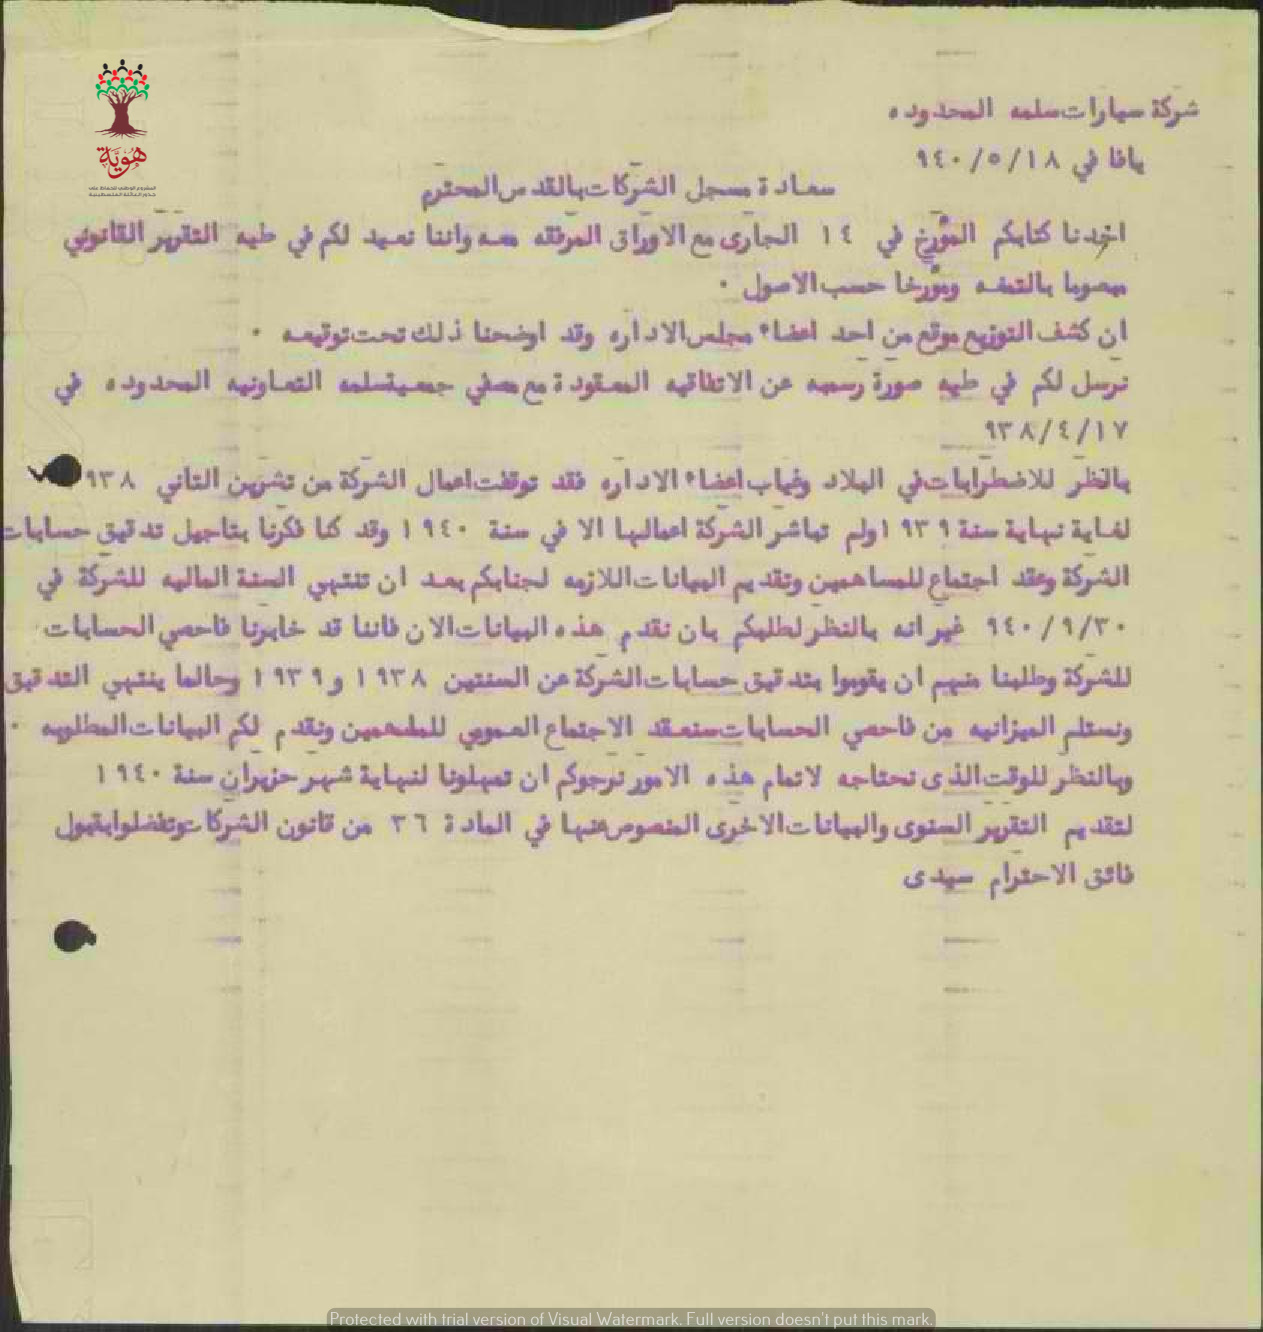 هوية
المشروع الوطني للحفاظ على
جذور العائلة الفلسطينية
شركة سيارات سلمه المحدوده
يافا في ٩٤٠/٥/١٨
سعادة مسجل الشركات بالقدس المحترم
اخذنا كتابكم المؤرخ في ١٤ الجارى مع الاوراق المرفقه معه واننا نعيد لكم في طيه التقرير القانوني
مبصوما بالتمغه ومؤرخا حسب الاصول ٠
ان كشف التوزيع موقع من احد اعضاء مجلس الاداره وقد اوضحنا ذلك تحت توقيعه ٠
نرسل لكم في طيه صورة رسميه عن الاتفاقيه المعقودة مع مصفي جمعية سلمه التعاونيه المحدوده في
٩٣٨/٤/١٧
بالنظر للاضطرابات في البلاد وغياب اعضاء الاداره فقد توقفت اعمال الشركة من تشرين الثاني ٩٣٨
لغاية نهاية سنة ١٩٣٩ ولم تباشر الشركة اعمالها الا في سنة ١٩٤٠ وقد كنا فكرنا بتاجيل تدقيق حسابات
الشركة وعقد اجتماع للمساهمين وتقديم البيانات اللازمه لجنابكم بعد ان تنتهي السنة الماليه للشركة في
٩٤٠/٩/٣٠ غير انه بالنظر لطلبكم بان نقدم هذه البيانات الان فاننا قد خابرنا فاحصي الحسابات
للشركة وطلبنا منهم ان يقوموا بتدقيق حسابات الشركة عن السنتين ١٩٣٨ و١٩٣٩ وحالما ينتهي التدقيق
ونستلم الميزانيه من فاحصي الحسابات سنعقد الاجتماع العمومي للمساهمين ونقدم لكم البيانات المطلوبه ٠
وبالنظر للوقت الذى نحتاجه لاتمام هذه الامور نرجوكم ان تمهلونا لنهاية شهر حزيران سنة ١٩٤٠
لتقديم التقرير السنوى والبيانات الاخرى المنصوص عنها في المادة ٣٦ من قانون الشركات وتفضلوا بقبول
فائق الاحترام سيدى
Protected with trial version of Visual Watermark. Full version doesn't put this mark.